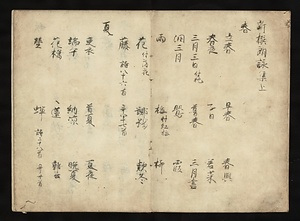 新撰朗詠集上
春
立春 早春 春興
春夜 子日 若菜
三月三日付桃 暮春 三月盡
閏三月 鶯 霞
雨 梅付紅梅 柳
花付落花 躑躅 款冬
藤 詩八十六首
夏
更衣 首夏 夏夜
端午 納涼 晩夏
花橘 蓮 郭公
螢 蟬